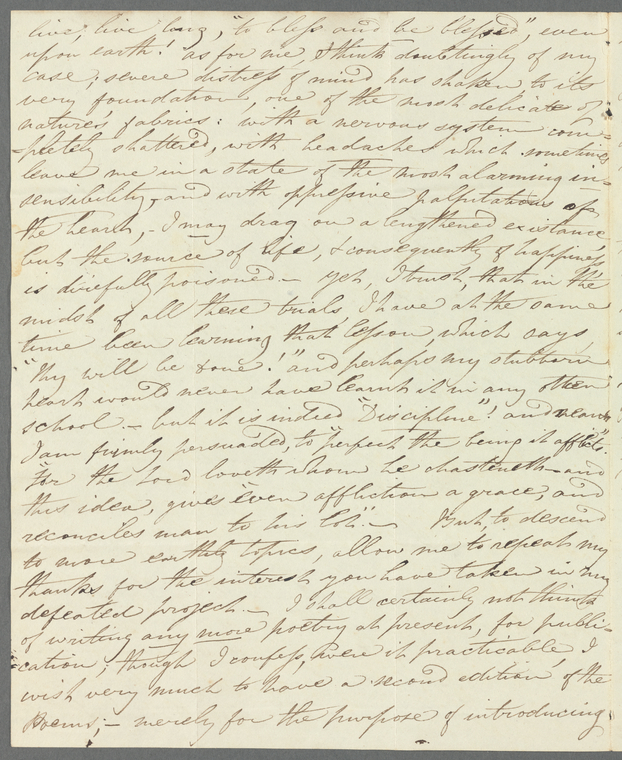 live, live long, "to bless and be blessed", even
upon earth! as for me, I think doubtingly of my
case; severe distress of mind has shaken to its
very foundation, one of the most delicate of
nature's fabrics: with a nervous system com-
-pletely shattered, with headaches which sometimes
leave me in a state of the most alarming in-
sensibility, and with oppressive palpitations of
the heart, - I may drag on a lengthened existance
but the source of life, & consequently of happiness
is direfully poisoned - yet, I trust, that in the
midst of all these trials, I have at the same
time been learning that lesson, which says,
"Thy will be done!" and perhaps my stubborn
heart would never have learnt it in any other
school. - but it is indeed "Discipline"! and means
I am firmly persuaded, to "perfect the being it afflicts."
"For the Lord loveth whom he chasteneth - and
this idea, gives "even affliction a grace, and
reconciles man to his lot." - But, to descend
to more earthly topics, allow me to repeat my
thanks for the interest you have taken in my
defeated project. - I shall certainly not think
of writing any more poetry at present, for publi-
cation; though I confess, were it practicable, I
wish very much to have a second edition of the
Poems; - merely for the purpose of introducing